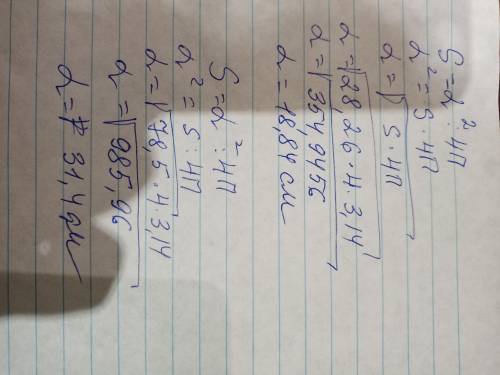 S=d²:4П
d²=S·4П
d=√S·4П
d=√28.26·4·3,14
d=√354,9456
d=18,84 см
S=d²:4П
d²=S:4П
d=√78,5·4·3,14
d=√985,96
d= 31,4 см